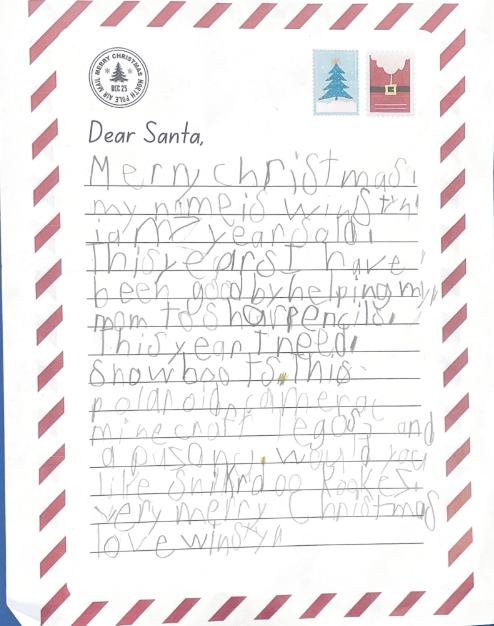 MERRY CHRISTMAS
DEC 25
NORTH POLE AIR MAIL
Dear Santa,
Merry christmas!
my name is winstyn!
i am 7 years old.
This years I have
been good by helping my
mom to sharpencils.
This year I need
snowboots. This
polaroid camera
minecraft legos and
a would you
like Snikrdoo Kookes.
very merry Christmas
love winstyn